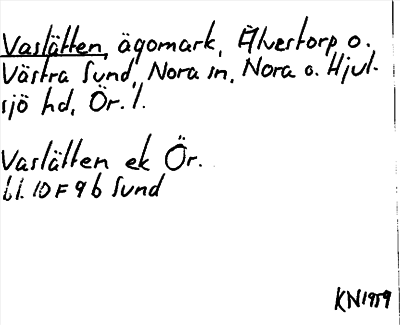 Vaslätten, ägomark, Älvestorp o.
Västra Sund, Nora sn, Nora o. Hjul-
sjö hd, Ör. l.
Vaslätten ek Ör.
bl. 10 F 9 b Sund
KN1959